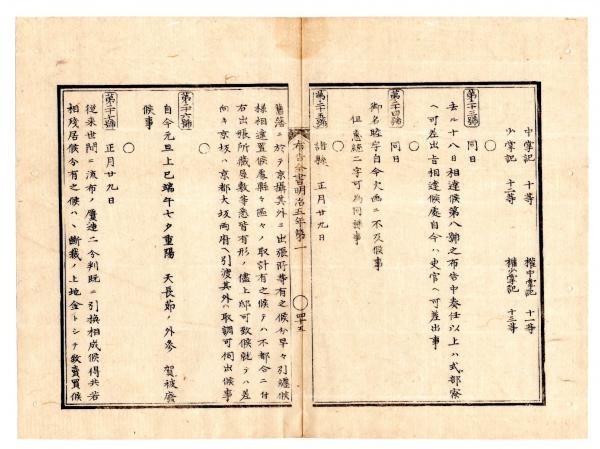 中掌記 十等 權中掌記 十一等
少掌記 十二等 權少掌記 十三等
○
第二十三號 同日
去ル十八日相達候第八號之布告中奏任以上ハ式部寮
ヘ可差出旨相達候處自今ハ史官ヘ可差出事
○
第二十四號 同日
御名睦字自今欠画ニ不及候事
但惠統二字可為同様事
○
第二十五號 諸縣 正月廿九日
布告全書明治五年第一 ○四十五
舊藩ニ於テ京攝其外ニ出張所等有之候分早々引纏候
様相達置候處縣々區々ノ取計有之候テハ不都合ニ付
右出張所藏屋敷等悉皆有形ノ儘上邸可致候就テハ差
向キ京坂ハ京都大坂両府ヘ引渡其外ハ取調可伺出候事
○
第二十六號
自今元旦上巳端午七夕重陽 天長節ノ外参 賀被廃
候事
○
第二十七號 正月廿九日
従来世間ニ流布ノ
相残居候分有之候ハヽ断裁ノ上地金トシテ